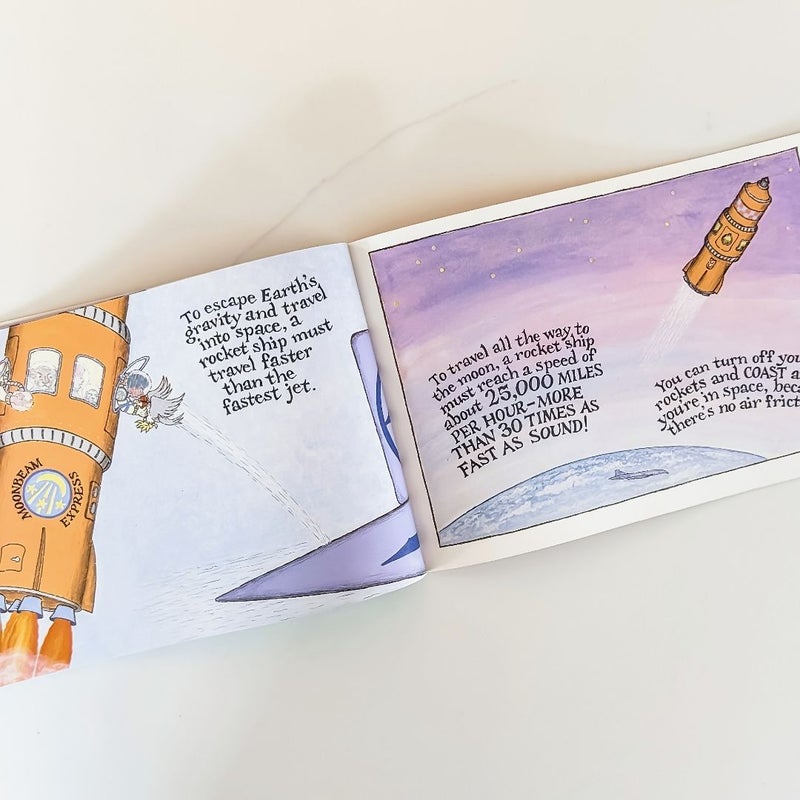 To escape Earth's
gravity and travel
into space, a
rocket ship must
travel faster
than the
fastest jet.
MOONBEAM
EXPRESS
To travel all the way to
the moon, a rocket ship
must reach a speed of
about 25,000 MILES
PER HOUR-MORE
THAN 30 TIMES AS
FAST AS SOUND!
You can turn off
rockets and COAST
you're in space,
there's no air